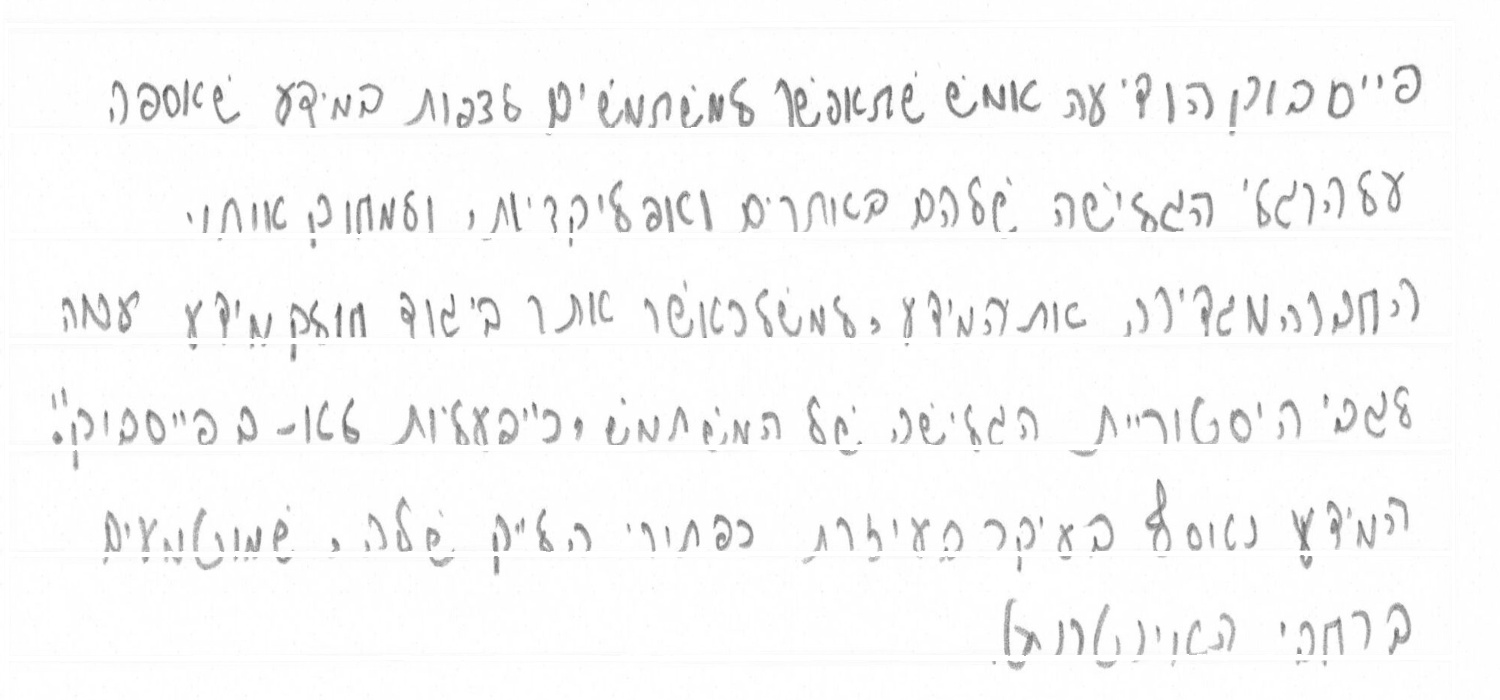 פייסבוק הודיעה אמש שתאפשר למשתמשים לצפות במידע שאספה
על הרגלי הגלישה שלהם באתרים ואפליקציות, ולמחוק אותו.
החברה מגדירה את המידע, למשל כאשר אתר ביגוד חולק מידע עמה
לגבי היסטוריית הגלישה של המשתמש, כ"פעילות לא- בפייסבוק".
המידע נאסף בעיקר בעזרת כפתורי הלייק שלה, שמוטמעים
ברחבי האינטרנט